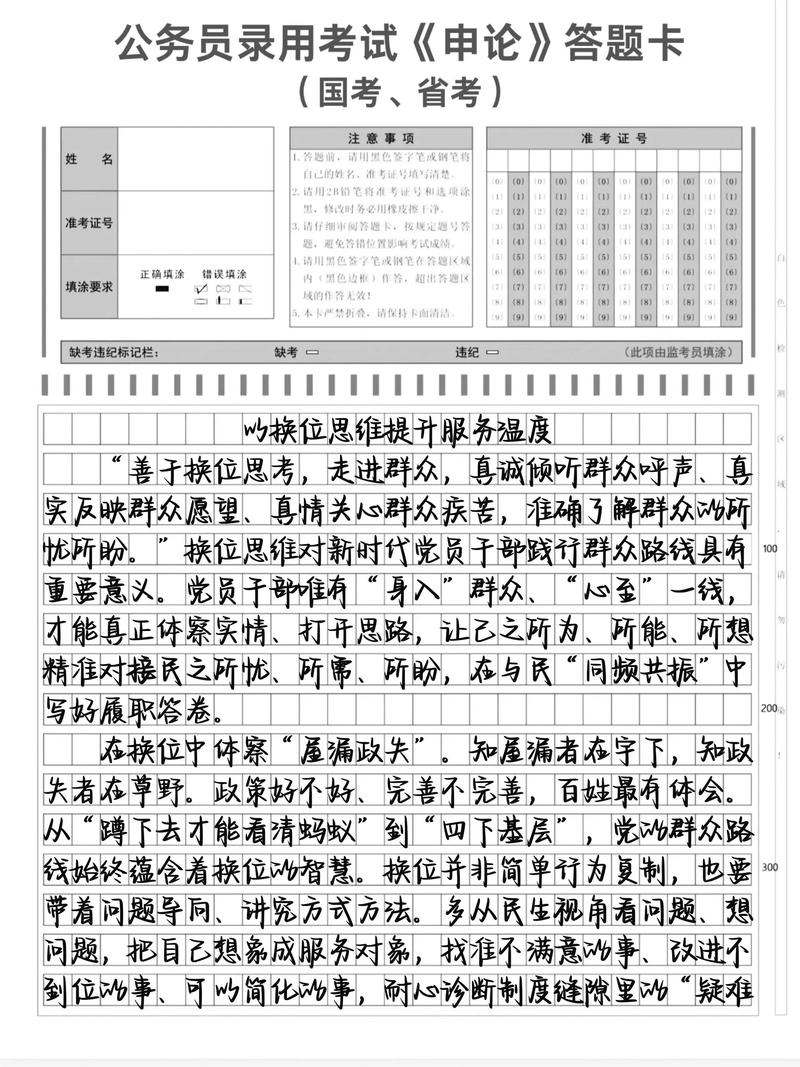 公务员录用考试《申论》答题卡
（国考、省考）
姓 名
准考证号
填涂要求
正确填涂 错误填涂
注意事项
1.答题前，请用黑色签字笔或钢笔将
自己的姓名、准考证号填写清楚。
2.请用2B铅笔将准考证号和选项涂
黑，修改时务必用橡皮擦干净。
3.请仔细审阅答题卡，按规定题号答
题，避免答错位置影响考试成绩。
4.请用黑色签字笔或钢笔在答题区域
内（黑色边框）作答，超出答题区
域的作答无效！
5.本卡严禁折叠，请保持卡面清洁。
准考证号
(0) (0) (0) (0) (0) (0) (0) (0) (0) (0) (0) (0)
(1) (1) (1) (1) (1) (1) (1) (1) (1) (1) (1) (1)
(2) (2) (2) (2) (2) (2) (2) (2) (2) (2) (2) (2)
(3) (3) (3) (3) (3) (3) (3) (3) (3) (3) (3) (3)
(4) (4) (4) (4) (4) (4) (4) (4) (4) (4) (4) (4)
(5) (5) (5) (5) (5) (5) (5) (5) (5) (5) (5) (5)
(6) (6) (6) (6) (6) (6) (6) (6) (6) (6) (6) (6)
(7) (7) (7) (7) (7) (7) (7) (7) (7) (7) (7) (7)
(8) (8) (8) (8) (8) (8) (8) (8) (8) (8) (8) (8)
(9) (9) (9) (9) (9) (9) (9) (9) (9) (9) (9) (9)
缺考违纪标记栏： 缺考 违纪 （此项由监考员填涂）
以换位思维提升服务温度
“善于换位思考，走进群众，真诚倾听群众呼声、真
实反映群众愿望、真情关心群众疾苦，准确了解群众的所
忧所盼。”换位思维对新时代党员干部践行群众路线具有
100
重要意义。党员干部唯有“身入”群众、“心至”一线，
才能真正体察实情、打开思路，让己之所为、所能、所想
精准对接民之所忧、所需、所盼，在与民“同频共振”中
写好履职答卷。
200
在换位中体察“屋漏政失”。知屋漏者在宇下，知政
失者在草野。政策好不好、完善不完善，百姓最有体会。
从“蹲下去才能看清蚂蚁”到“四下基层”，党的群众路
线始终蕴含着换位的智慧。换位并非简单行为复制，也要
300
带着问题导向、讲究方式方法。多从民生视角看问题、想
问题，把自己想象成服务对象，找准不满意的事、改进不
到位的事、可以简化的事，耐心诊断制度缝隙里的“疑难
白色检测区域，请勿污染！